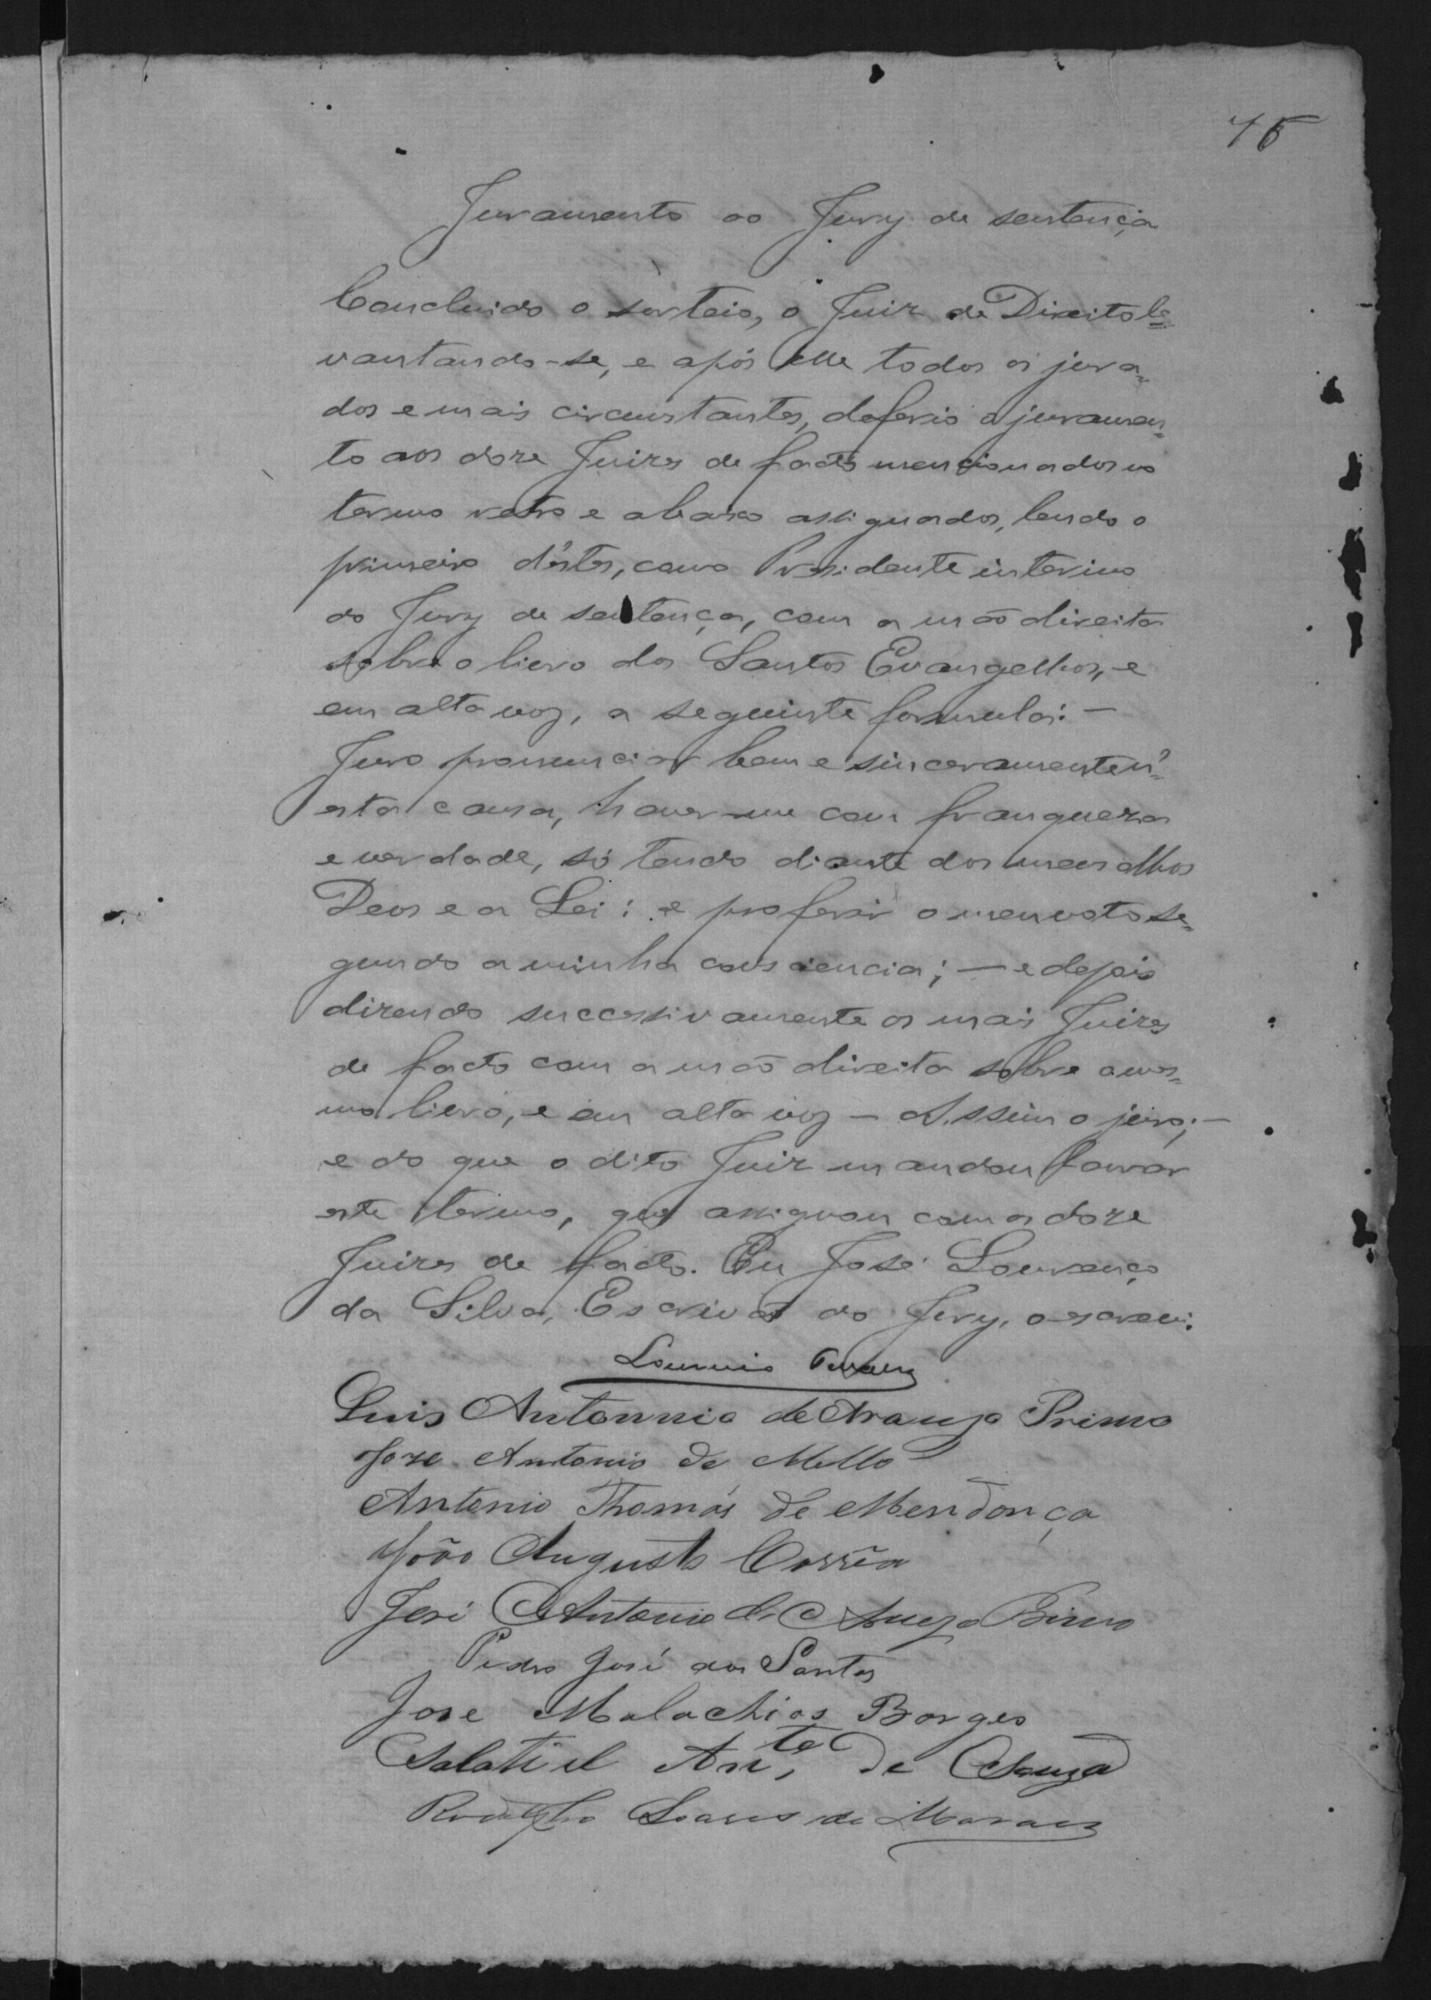 75
Juramento ao Jury de sentença
Concluido o sorteio, o Juiz de Direito le=
vantando-se, e após elle todos os jura=
dos e mais circunstantes, deferio o juramen=
to aos doze Juizes de facto mencionados no
termo retro e abaixo assignados, lendo o
primeiro d'éstes, como Presidente interino
do Jury de sentença, com a mão direita
sobre o livro dos Santos Evangelhos, e
em alta voz, a seguinte formula: —
Juro pronunciar bem e sinceramente n'=
esta causa, haver-me com franqueza
e verdade, só tendo diante dos meus olhos
Deus e a Lei; e proferir o meu voto se=
gundo a minha consciencia; — e depois
dizendo successivamente os mais Juizes
de facto com a mão direita sobre o mes=
mo livro, e em alta voz — Assim o juro; —
e do que o dito Juiz mandou lavrar
este termo, que assignou com os doze
Juizes de facto. Eu José Lourenço
da Silva, Escrivão do Jury, o escrevi.
Luis Antonnio de Araujo Primo
Joze Antonio de Mello
Antonio Thomás de Mendonça
João Augusto Corrêa
José Antonio de Araujo Primo
Pedro José dos Santos
Jose Malachias Borges
Salatiel An.te de Souza
Rodolpho Soares de Moraes